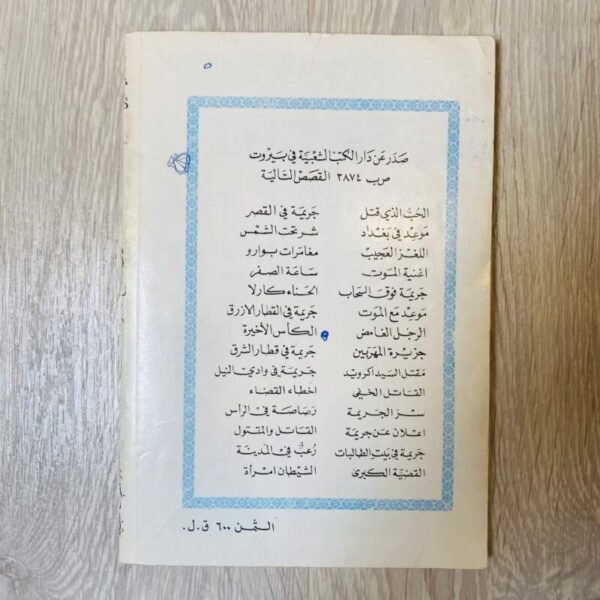 صدر عن دار الكتب الشعبية في بيروت
ص ب ٢٨٧٤ القصص التالية
الحب الذي قتل جريمة في القصر
موعد في بغداد شر تحت الشمس
اللغز العجيب مغامرات بوارو
اغنية الموت ساعة الصفر
جريمة فوق السحاب الحسناء كارلا
موعد مع الموت جريمة في القطار الازرق
الرجل الغامض الكأس الأخيرة
جزيرة المهربين جريمة في قطار الشرق
مقتل السيد اكرويد جريمة في وادي النيل
القاتل الخفي اخطاء القضاء
سر الجريمة رصاصة في الرأس
اعلان عن جريمة القاتل والمقتول
جريمة في بيت الطالبات رعب في المدينة
القضية الكبرى الشيطان امرأة
الثمن ٦٠٠ ق.ل.